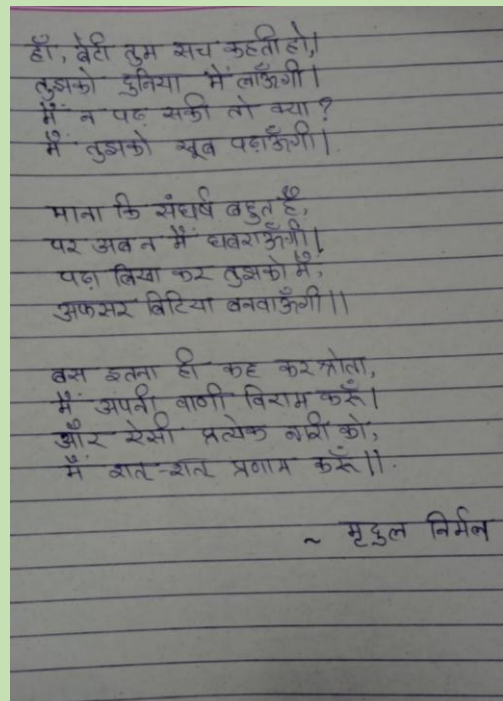 हाँ, बेटी तुम सच कहती हो,।
तुझको दुनिया में लाऊँगी।
मैं न पढ़ सकी तो क्या?
मैं तुझको खूब पढ़ाऊँगी।
माना कि संघर्ष बहुत है,
पर अब न मैं घबराऊँगी।
पढ़ा लिखा कर तुझको मैं,
अफसर बिटिया बनवाऊँगी।।
बस इतना ही कह कर श्रोता,
मैं अपनी वाणी विराम करूँ।
और ऐसी प्रत्येक नारी को,
मैं शत-शत प्रणाम करूँ।।.
~ मृदुल निर्मल